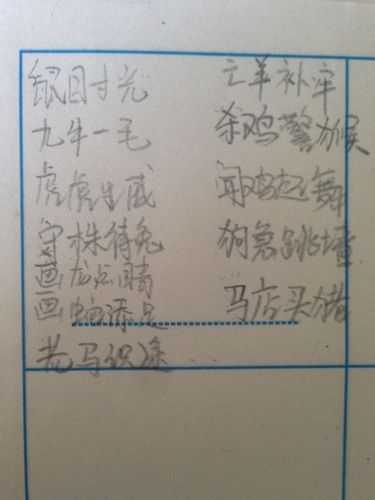 鼠目寸光
九牛一毛
虎虎生威
守株待兔
画龙点睛
画蛇添足
老马识途
亡羊补牢
杀鸡警猴
闻鸡起舞
狗急跳墙
马店头猪